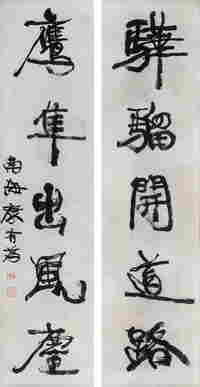 驊騮開道路
鷹隼出風塵
南海康有為